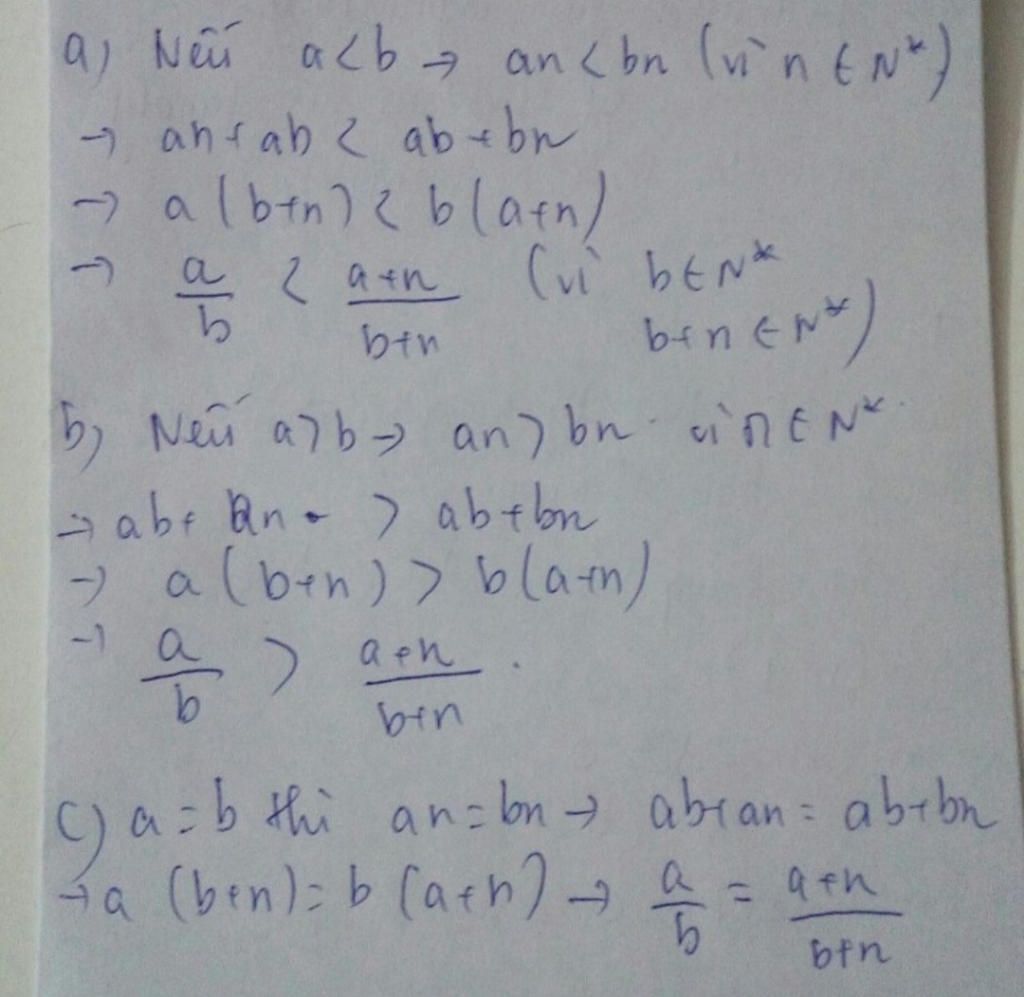 a) Nếu a < b → an < bn (vì n ∈ N*)
→ an + ab < ab + bn
→ a(b+n) < b(a+n)
→ a/b < (a+n)/(b+n) (vì b ∈ N*
b+n ∈ N*)
b) Nếu a > b → an > bn vì n ∈ N*
→ ab + an > ab + bn
→ a(b+n) > b(a+n)
→ a/b > (a+n)/(b+n).
c) a = b thì an = bn → ab + an = ab + bn
→ a (b+n) = b (a+n) → a/b = (a+n)/(b+n)